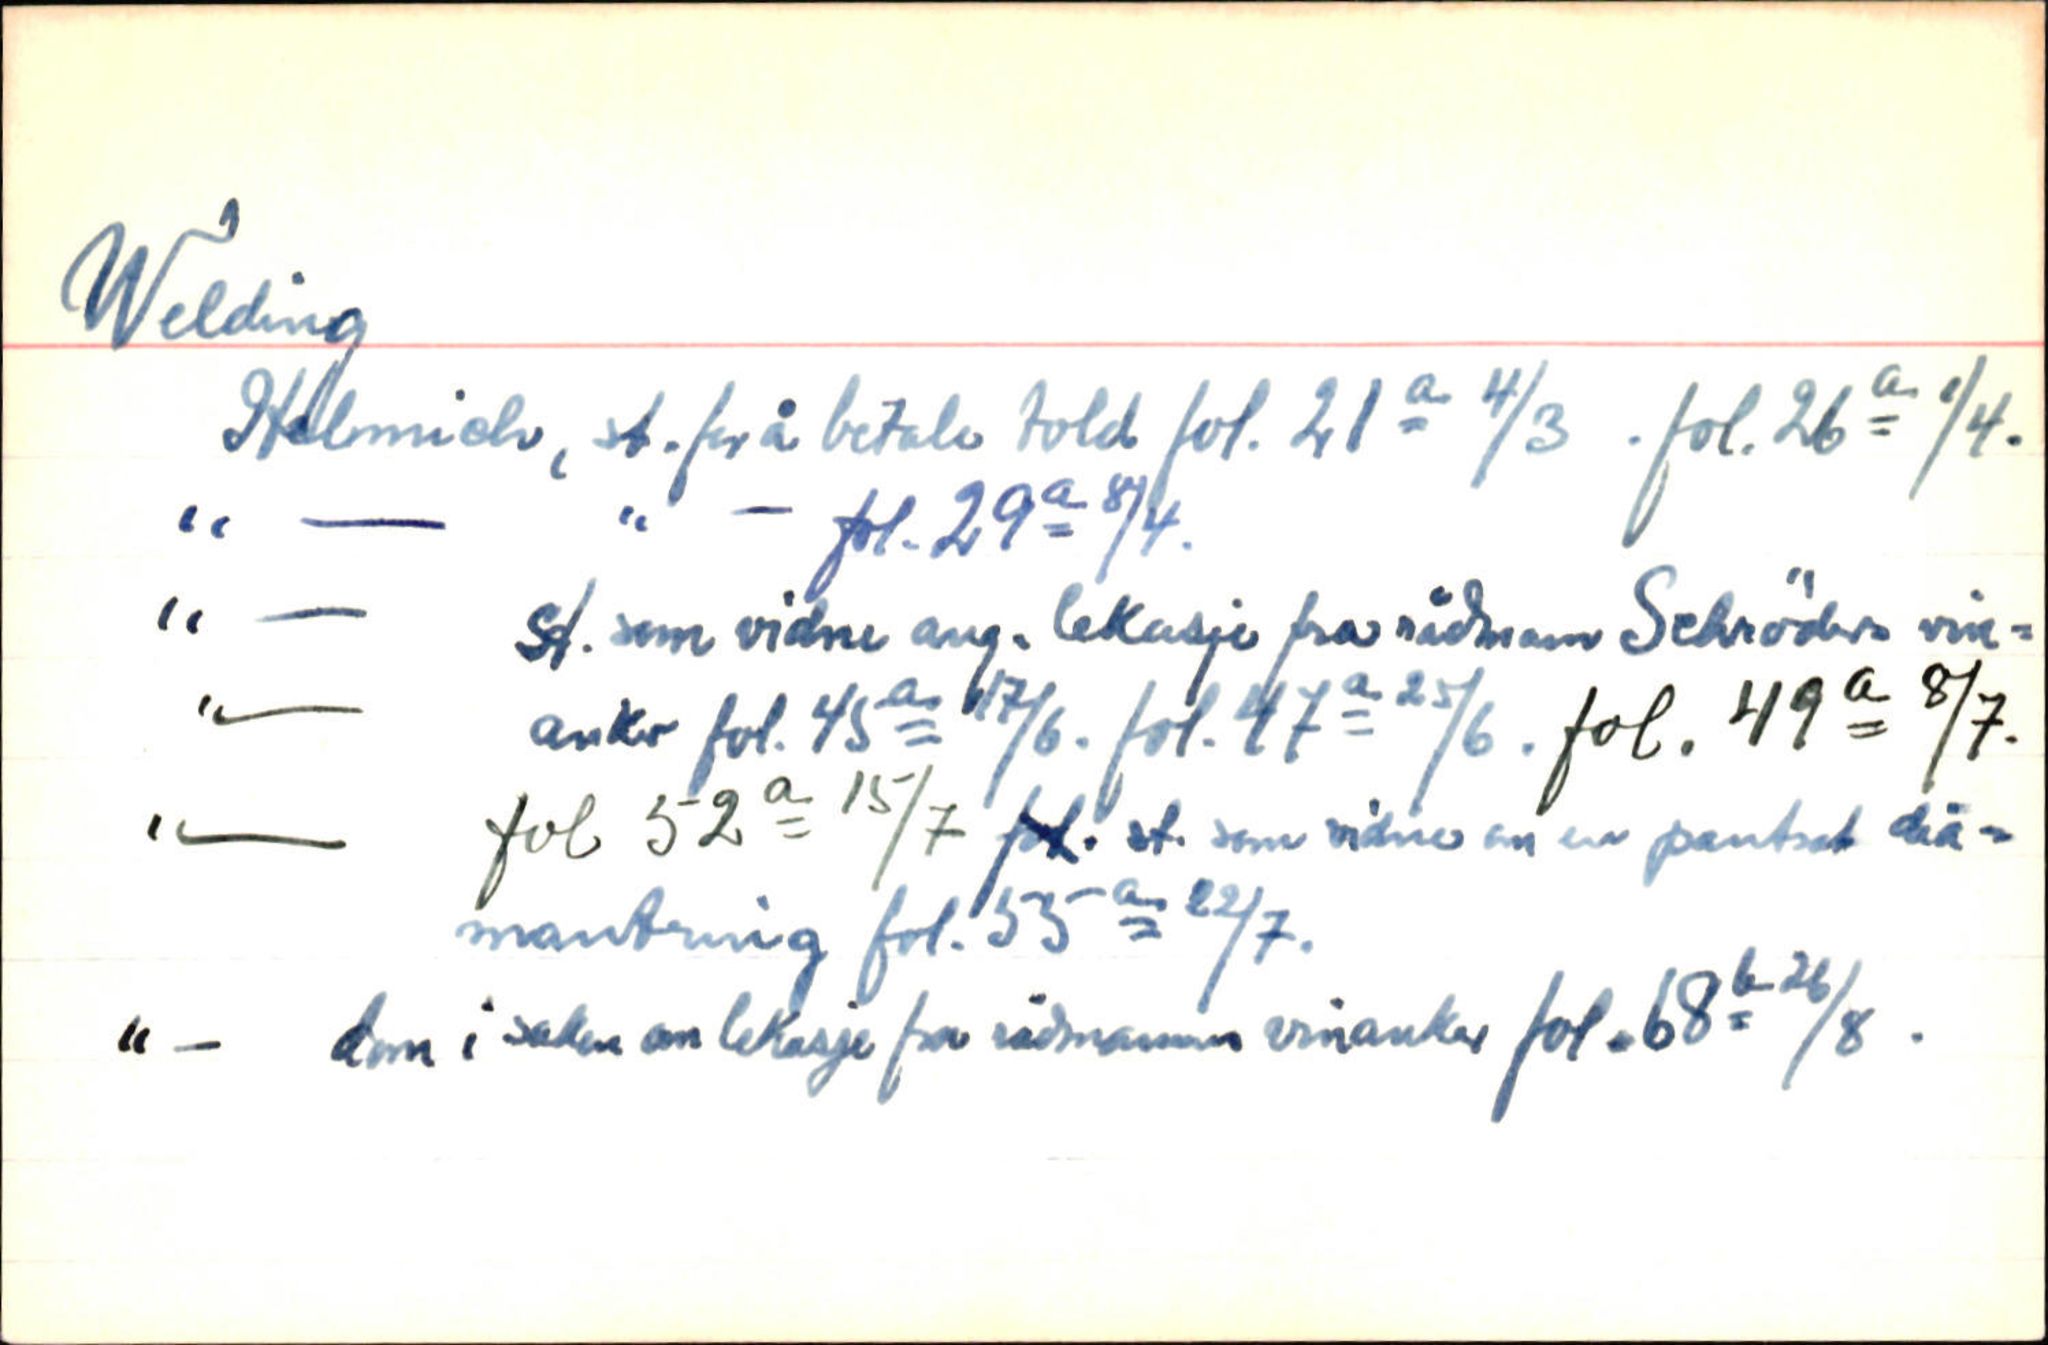 Welding
Helmich, st. for å betale told fol. 21a 4/3 . fol. 26a 1/4.
" — " — fol. 29a 8/4.
" — St. som vidne ang. lekasje fra rådmann Schröders vin=
" — anker fol. 45a 17/6. fol. 47a 25/6. fol. 49a 8/7.
" — fol 52a 15/7 st. som vidne om en pantsat dia=
mantring fol. 55a 22/7.
" — dom i saken om lekasje fra rådmannens vinanker fol. 68b 26/8.